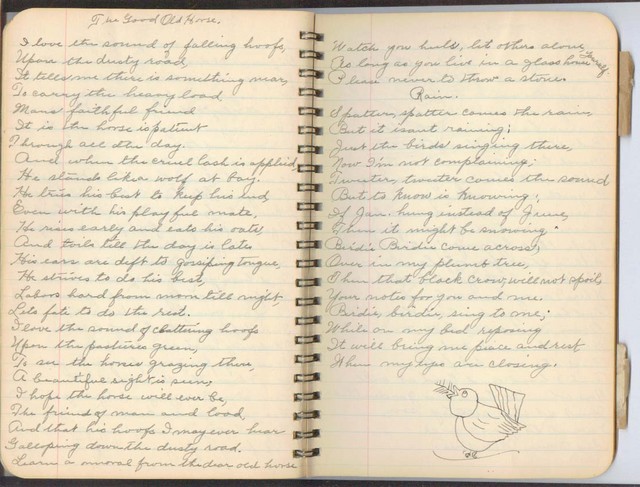 The Good Old Horse.
I love the sound of falling hoofs,
Upon the dusty road,
It tells me there is something near,
To carry the heavy load,
Mans faithful friend
It is the horse is patient
Through all the day.
And when the cruel lash is applied,
He stands like a wolf at bay.
He tries his best to keep his end,
Even with his playful mate,
He rises early and eats his oats,
And toils till the day is late
His ears are deft to gossiping tongue,
He strives to do his best,
Labors hard from morn till night,
Lets fate to do the rest.
I love the sound of clattering hoofs
Upon the pastures green,
To see the horses grazing there,
A beautiful sight is seen;
I hope the horse will ever be,
The friend of man and load,
And that his hoofs I may ever hear
Galloping down the dusty road.
Learn a moral from the dear old horse
Watch you heels, let others alone,
As long as you live in a glass house yourself
Please never to throw a stone.
Rain.
Spatter, spatter comes the rain,
But it isant raining;
Just the birds singing there,
Now I'm not complaining;
Tweater, tweater comes the sound
But to know is knowing;
If Jan. hung instead of June,
Then it might be snowing.
Birdie Birdie come across,
Over in my plumb tree,
Then that black crow, will not spoil,
Your notes for you and me.
Birdie, birdie, sing to me;
While on my bed reposing
It will bring me peace and rest
When my eyes are closing.